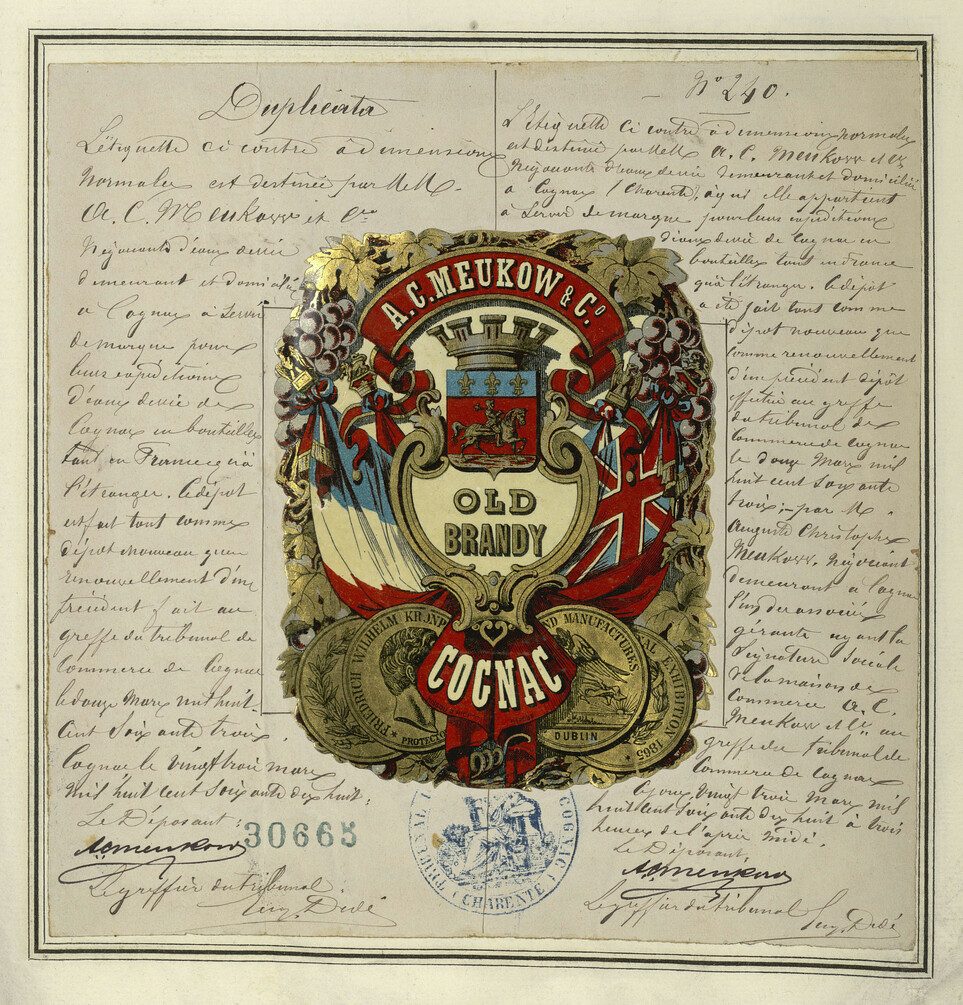 Duplicata
L'étiquette ci contre à dimensions
normales est destinée par MM
A. C. Meukow et Cie
Négociants d'eaux de vie
demeurant et domiciliés
a Cognac à servir
de marque pour
leurs expéditions
d'eaux de vie de
Cognac en bouteilles
tant en France qu'à
l'étranger. Ce dépôt
est fait tant comme
dépôt nouveau que
renouvellement d'un
précédent fait au
greffe du tribunal de
Commerce de Cognac
le douze Mars mil huit
cent soixante trois.
Cognac le vingt trois mars
mil huit cent soixante dix huit:
Le Déposant:
ACMeukow
30665
Le greffier du tribunal.
Eug. Dedé
No 240.
L'étiquette ci contre à dimensions normales
est destinée par MM A. C. Meukow et Cie
Négociants d'eaux de vie demeurant et domiciliés
a Cognac (Charente), à qui elle appartient
à servir de marque pour leurs expéditions
d'eaux de vie de Cognac en
bouteilles tant en France
qu'à l'étranger. Ce dépôt
a été fait tant comme
dépôt nouveau que
comme renouvellement
d'un précédent dépôt
effectué au greffe
du tribunal de
Commerce de Cognac
le douze Mars mil
huit cent soixante
trois; par M.
Auguste Christophe
Meukow, négociant
demeurant à Cognac
l'un des associés
gérants ayant la
signature sociale
de la maison de
Commerce A. C.
Meukow et Cie au
greffe du tribunal de
Commerce de Cognac
Ce jour, vingt trois Mars mil
huit cent soixante dix huit à trois
heures de l'après midi.
Le Déposant,
ACMeukow
Le greffier du tribunal
Eug. Dedé
A. C. MEUKOW & Co.
OLD
BRANDY
COGNAC
FRIEDRICH WILHELM KRONP
PROTECTO
ND MANUFACTURES
AL EXHIBITION 1865
DUBLIN
TRIBUNAL
COGNAC
(CHARENTE)